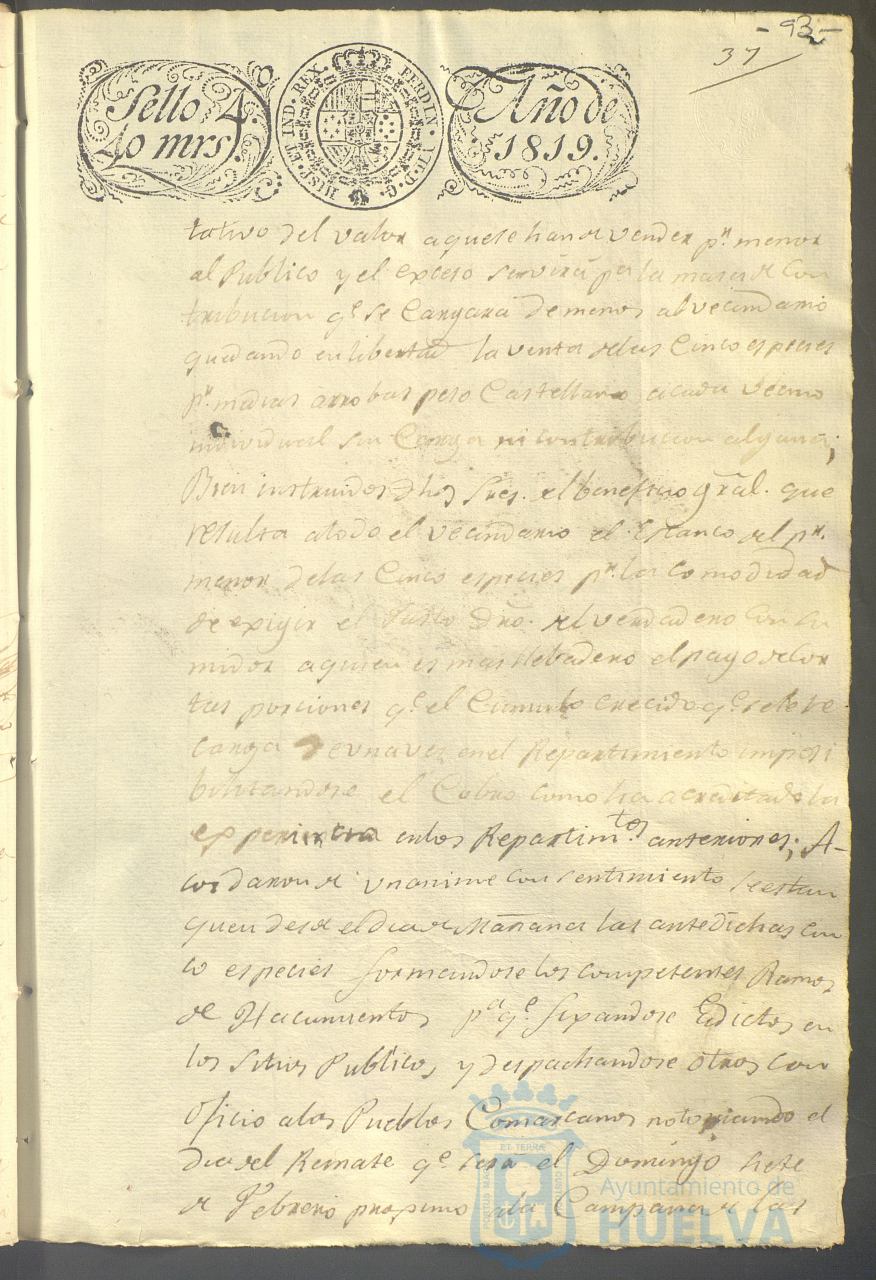 - 93 -
37
Sello 4.º
40 mrs.
HISP. ET IND. REX. FERDIN. VII. D. G.
Año de
1819.
tativo del valor aquese han de vender pr. menor
al Publico y el exceso servirá pa. la masa de Con
tribucion qe. se Cargará de menos al vecindario
quedando en libertad la venta delas Cinco especies
pr. medias arrobas peso Castellano acada vecino
individual sin Carga ni contribucion alguna;
Bien instruidos dhos Sres. del beneficio gral. que
resulta atodo el vecindario el Estanco del pr.
menor delas Cinco especies pr. la comodidad
de exigir el Justo Dro. del verdadero Consu
midor aquien es mas llebadero el pago de Cor
tas porciones qe. el Cumulo crecido qe. sele re
carga de una vez en el Repartimiento imposi
bilitandose el Cobro como ha acreditado la
experiencia en los Repartimtos. anteriores; A-
cordaron de unanime consentimiento se estan
quen desde el dia de Mañana las antedichas cin
co especies formandose los competentes Ramos
de Hacimientos pa. qe. fixandose Edictos en
los Sitios Publicos, y despachandose otros con
Oficio alos Pueblos Comarcanos noticiando el
dia del Remate qe. sera el Domingo siete
de Febrero proximo ala Campana de las
PORTUS MARIS ET TERRAE CUSTODIA
Ayuntamiento de
HUELVA